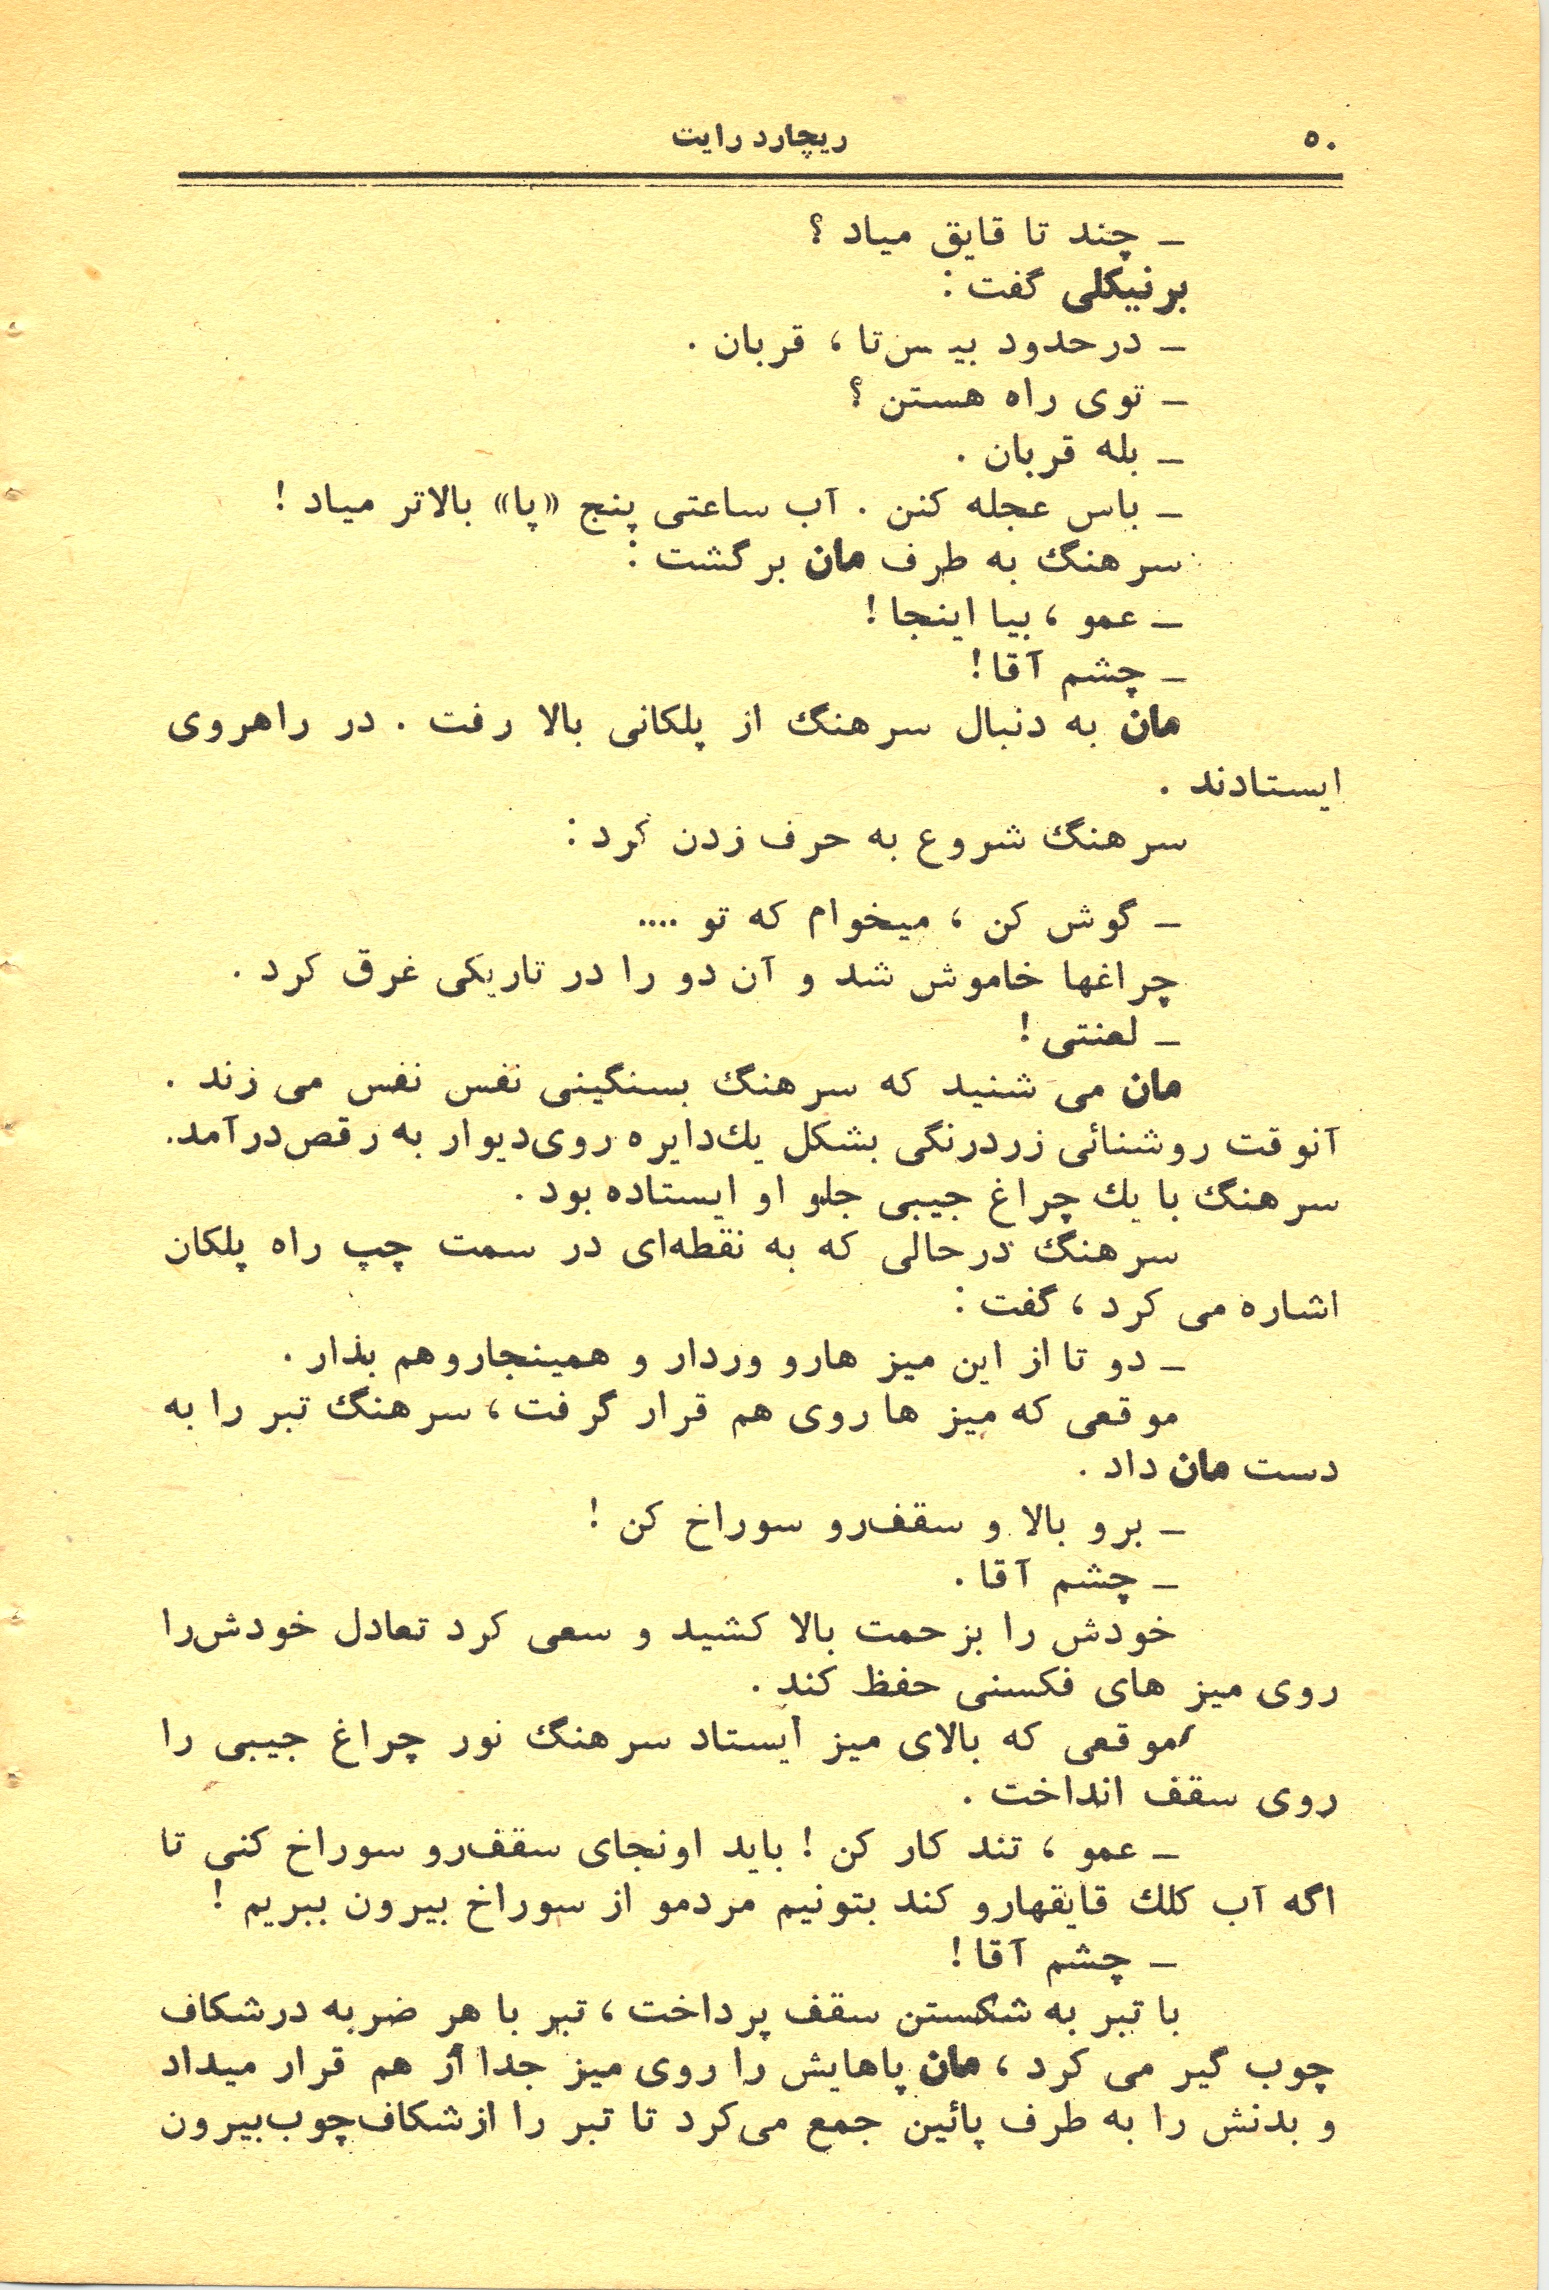 ۵۰
ریچارد رایت
ـ چند تا قایق میاد ؟
برنیکلی گفت :
ـ درحدود بیس‌تا ، قربان .
ـ توی راه هستن ؟
ـ بله قربان .
ـ باس عجله کنن . آب ساعتی پنج «پا» بالاتر میاد !
سرهنگ به طرف مان برگشت :
ـ عمو ، بیا اینجا !
ـ چشم آقا !
مان به دنبال سرهنگ از پلکانی بالا رفت . در راهروی
ایستادند .
سرهنگ شروع به حرف زدن کرد :
ـ گوش کن ، میخوام که تو ....
چراغها خاموش شد و آن دو را در تاریکی غرق کرد .
ـ لعنتی !
مان می شنید که سرهنگ بسنگینی نفس نفس می زند .
آنوقت روشنائی زردرنگی بشکل یك‌دایره روی‌دیوار به رقص‌درآمد.
سرهنگ با یك چراغ جیبی جلو او ایستاده بود .
سرهنگ درحالی که به نقطه‌ای در سمت چپ راه پلکان
اشاره می کرد ، گفت :
ـ دو تا از این میز هارو وردار و همینجاروهم بذار .
موقعی که میز ها روی هم قرار گرفت ، سرهنگ تبر را به
دست مان داد .
ـ برو بالا و سقف‌رو سوراخ کن !
ـ چشم آقا .
خودش را بزحمت بالا کشید و سعی کرد تعادل خودش‌را
روی میز های فکسنی حفظ کند .
موقعی که بالای میز ایستاد سرهنگ نور چراغ جیبی را
روی سقف انداخت .
ـ عمو ، تند کار کن ! باید اونجای سقف‌رو سوراخ کنی تا
اگه آب کلك قایقهارو کند بتونیم مردمو از سوراخ بیرون ببریم !
ـ چشم آقا !
با تبر به شکستن سقف پرداخت ، تبر با هر ضربه درشکاف
چوب گیر می کرد ، مان پاهایش را روی میز جدا از هم قرار میداد
و بدنش را به طرف پائین جمع می‌کرد تا تبر را ازشکاف‌چوب‌بیرون